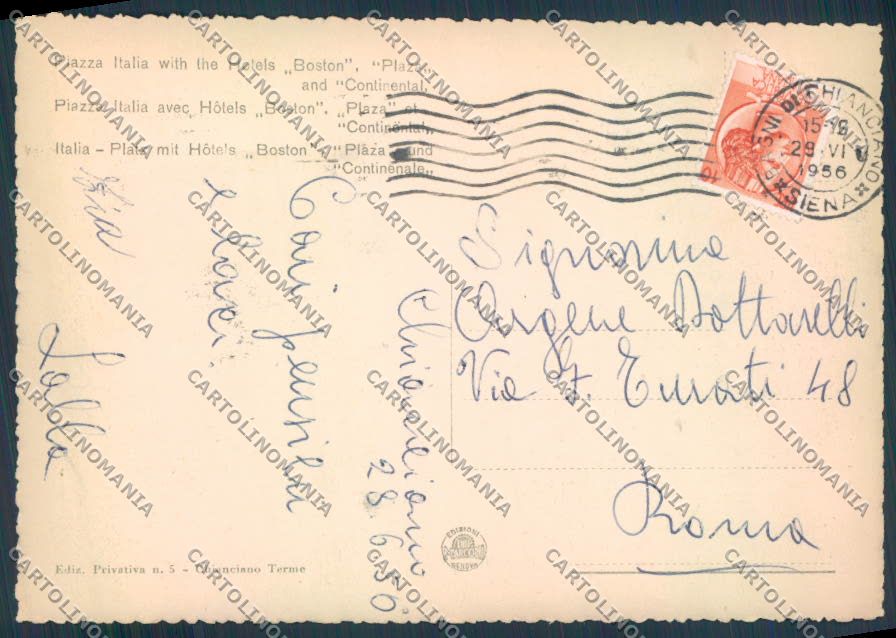 Piazza Italia with the Hotels „Boston", "Plaza„
and "Continental„
Piazza Italia avec Hôtels „Boston", „Plaza" et
"Continental„
Italia – Platz mit Hôtels „Boston„ "Plaza„ und
"Continentale„
BAGNI DI CHIANCIANO
15-16
29 VI
1956
* SIENA *
Chianciano
28.6.56
Cari pensieri
e baci
Zia
Lalla
Signorina
Argene Dottarelli
Via F. Turati 48
Roma
EDIZIONI
GENOVA
Ediz. Privativa n. 5 – Chianciano Terme
CARTOLINOMANIA